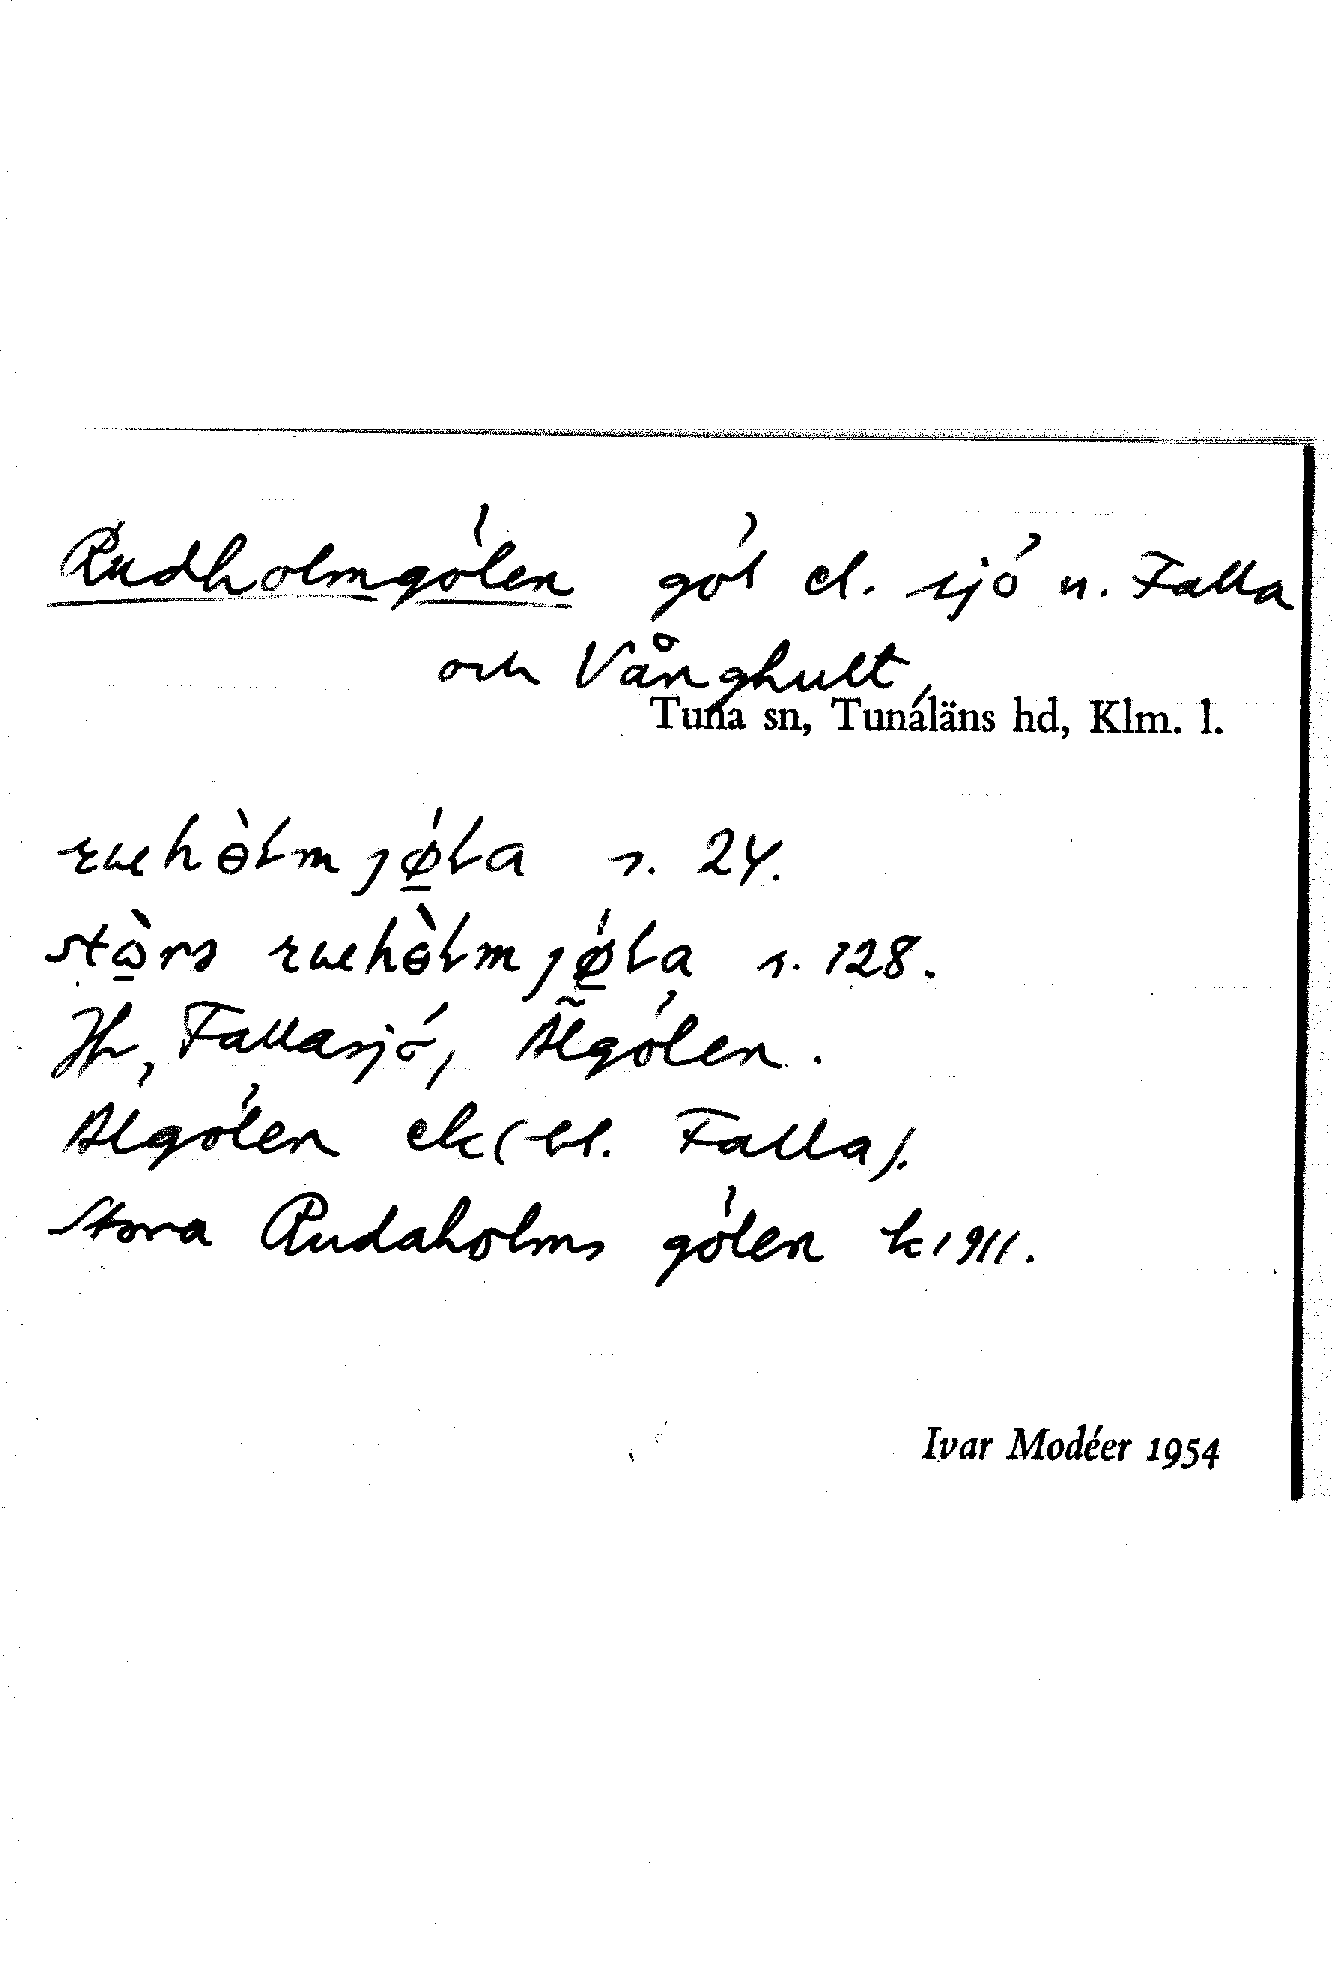 Rudholmgölen göl el. sjö u. Falla
och Vånghult,
Tuna sn, Tunaläns hd, Klm. l.
s. 24.
s. 128.
Hr, Fallasjö, Älgölen.
Älgölen ek (bl. Falla).
Stora Rudaholms gölen k 1911.
Ivar Modéer 1954